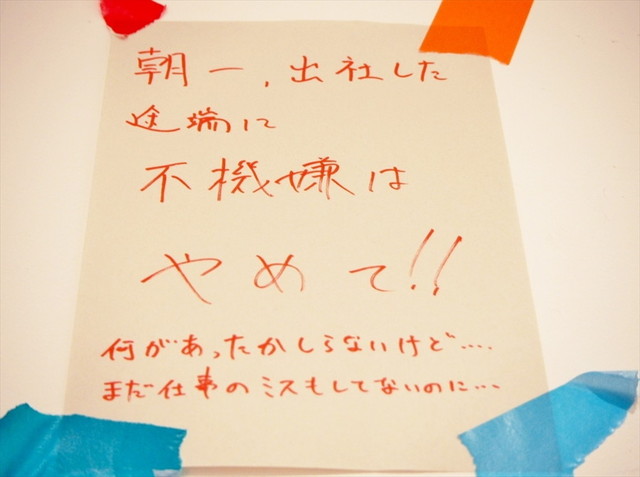 朝一、出社した
途端に
不機嫌は
やめて!!
何があったかしらないけど‥‥
まだ仕事のミスもしてないのに‥‥